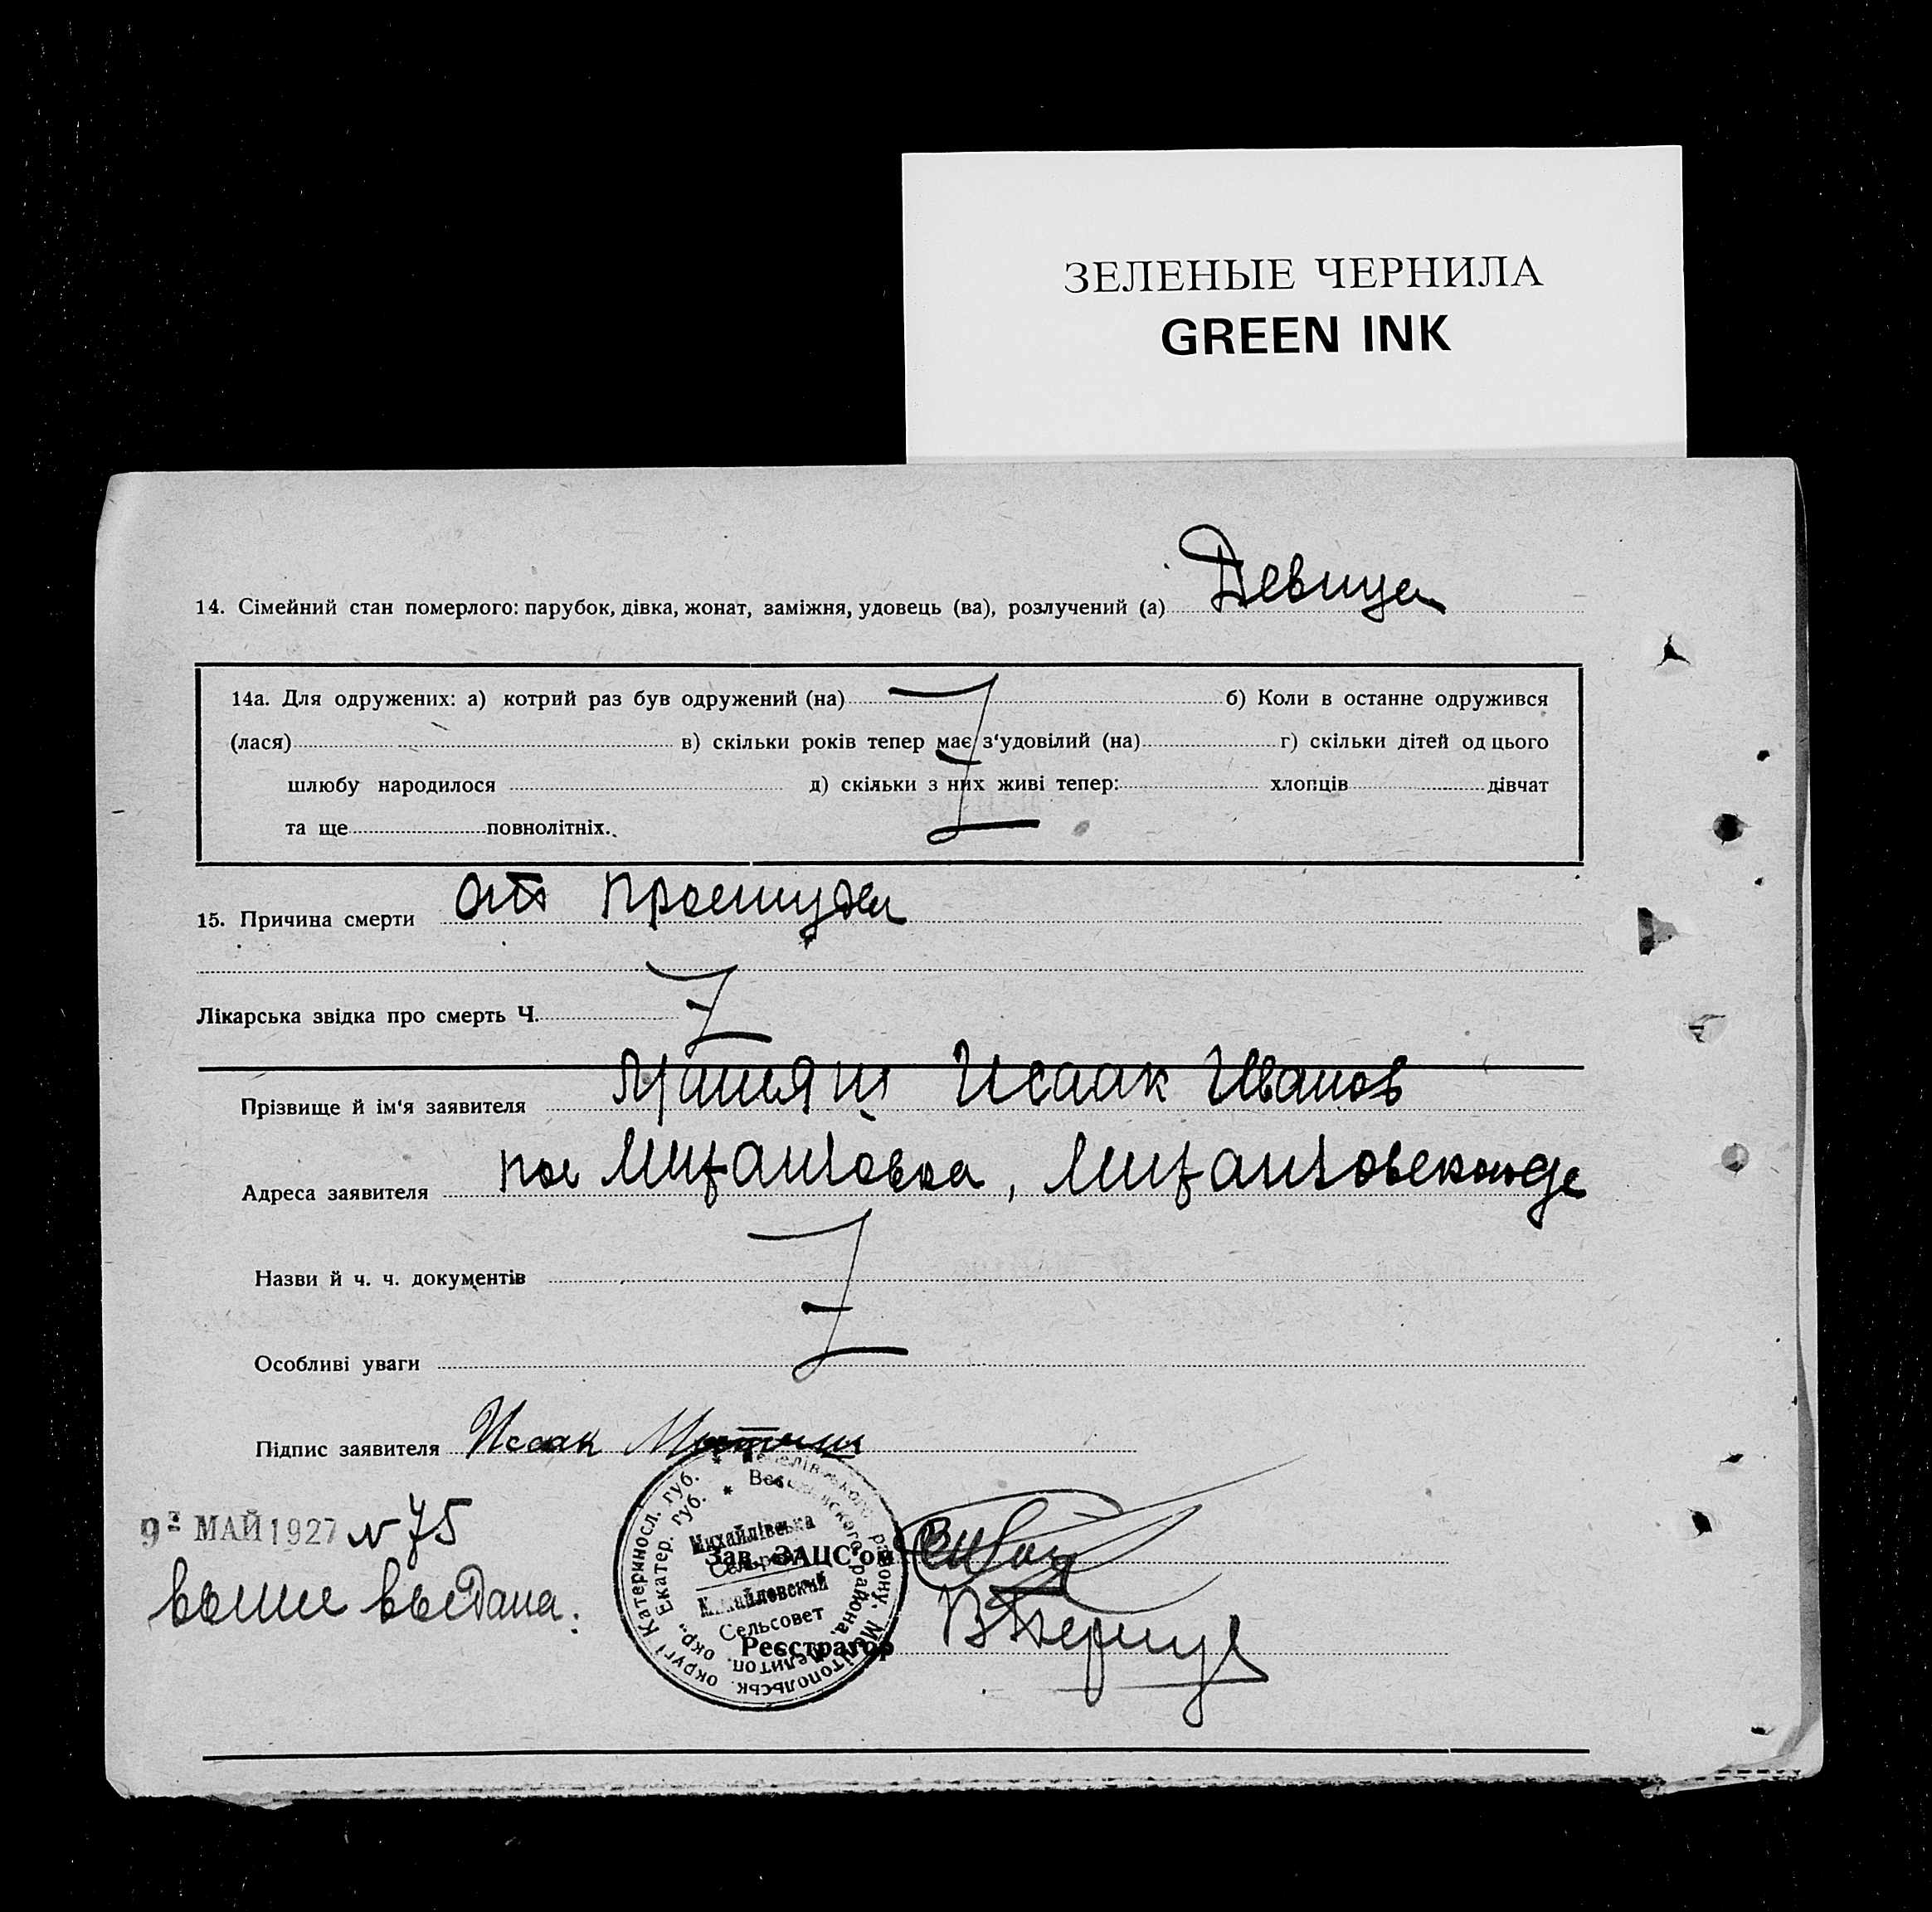 ЗЕЛЕНЫЕ ЧЕРНИЛА
GREEN INK
14. Сімейний стан померлого: парубок, дівка, жонат, заміжня, удовець (ва), розлучений (а) Девица
14а. Для одружених: а) котрий раз був одружений (на) б) Коли в останне одружився
(лася) в) скільки років тепер має з'удовілий (на) г) скільки дітей од цього
шлюбу народилося д) скільки з них живі тепер: хлопців дівчат
та ще повнолітніх.
15. Причина смерти от простуды
Лікарська звідка про смерть Ч.
Прізвище й ім'я заявителя Исаак Иванов
Адреса заявителя Михайловка,
Назви й ч. ч. документів
Особливі уваги
Підпис заявителя Исаак
9 МАЙ 1927 N 75
выдана.
Михайлівська
Сельрада
Михайловский
Сельсовет
Катериносл. губ. * району, Мелітопольськ. округи
Екатер. губ. * Веселовского района, Мелитоп. окр.,
Зав. ЗАЦС'ом
Реєстратор